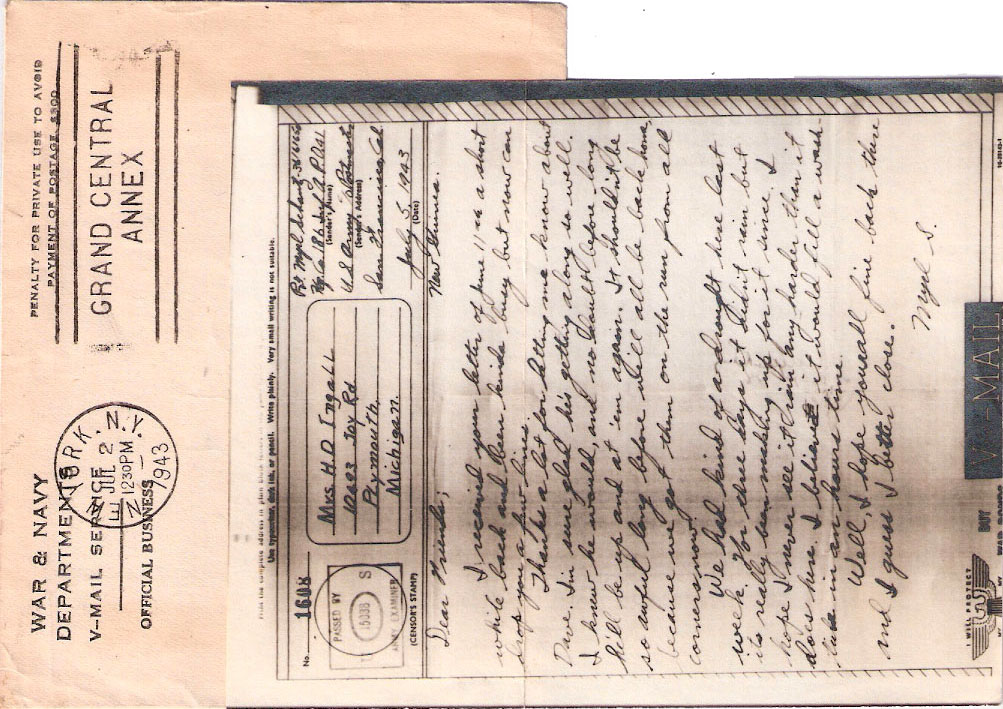 WAR & NAVY
DEPARTMENTS
V-MAIL SERVICE
OFFICIAL BUSINESS
YORK, N.Y.
JUL 2
1230 PM
1943
PENALTY FOR PRIVATE USE TO AVOID
PAYMENT OF POSTAGE, $300
GRAND CENTRAL
ANNEX
Print the complete address in plain block letters
Use typewriter, dark ink, or pencil. Write plainly. Very small writing is not suitable.
No. 1608
PASSED BY
15038 S
ARMY EXAMINER
(CENSOR'S STAMP)
Mrs. H D Ingall
Joy Rd
Plymouth,
Michigan.
Pvt Myrl
Hq. Co 186 Inf A.P.O. 41
(Sender's Name)
U.S Army Postmaster
(Sender's Address)
San Francisco, Cal
July 5, 1943
(Date)
New Guinea.
Dear Friends;
I received your letter of June 11 a short
while back and been kinda busy but now can
drop you a few lines.
Thanks a lot for letting me know about
Dave. I'm sure glad his getting along so well.
I knew he would, and no doubt before long
he'll be up and at 'em again. It shouldn't be
so awful long before we'll all be back home,
because we got them on the run from all
corners now.
We had kind of a drought here last
week. For three days it didn't rain but
its really been making up for it since. I
hope I never see it rain any harder than it
does here. I believe it would fill a wash-
tub in an hours time.
Well, I hope you all fine back there
and I guess I better close.
Myrl S.
V···—MAIL
BUY
I WILL PROTECT